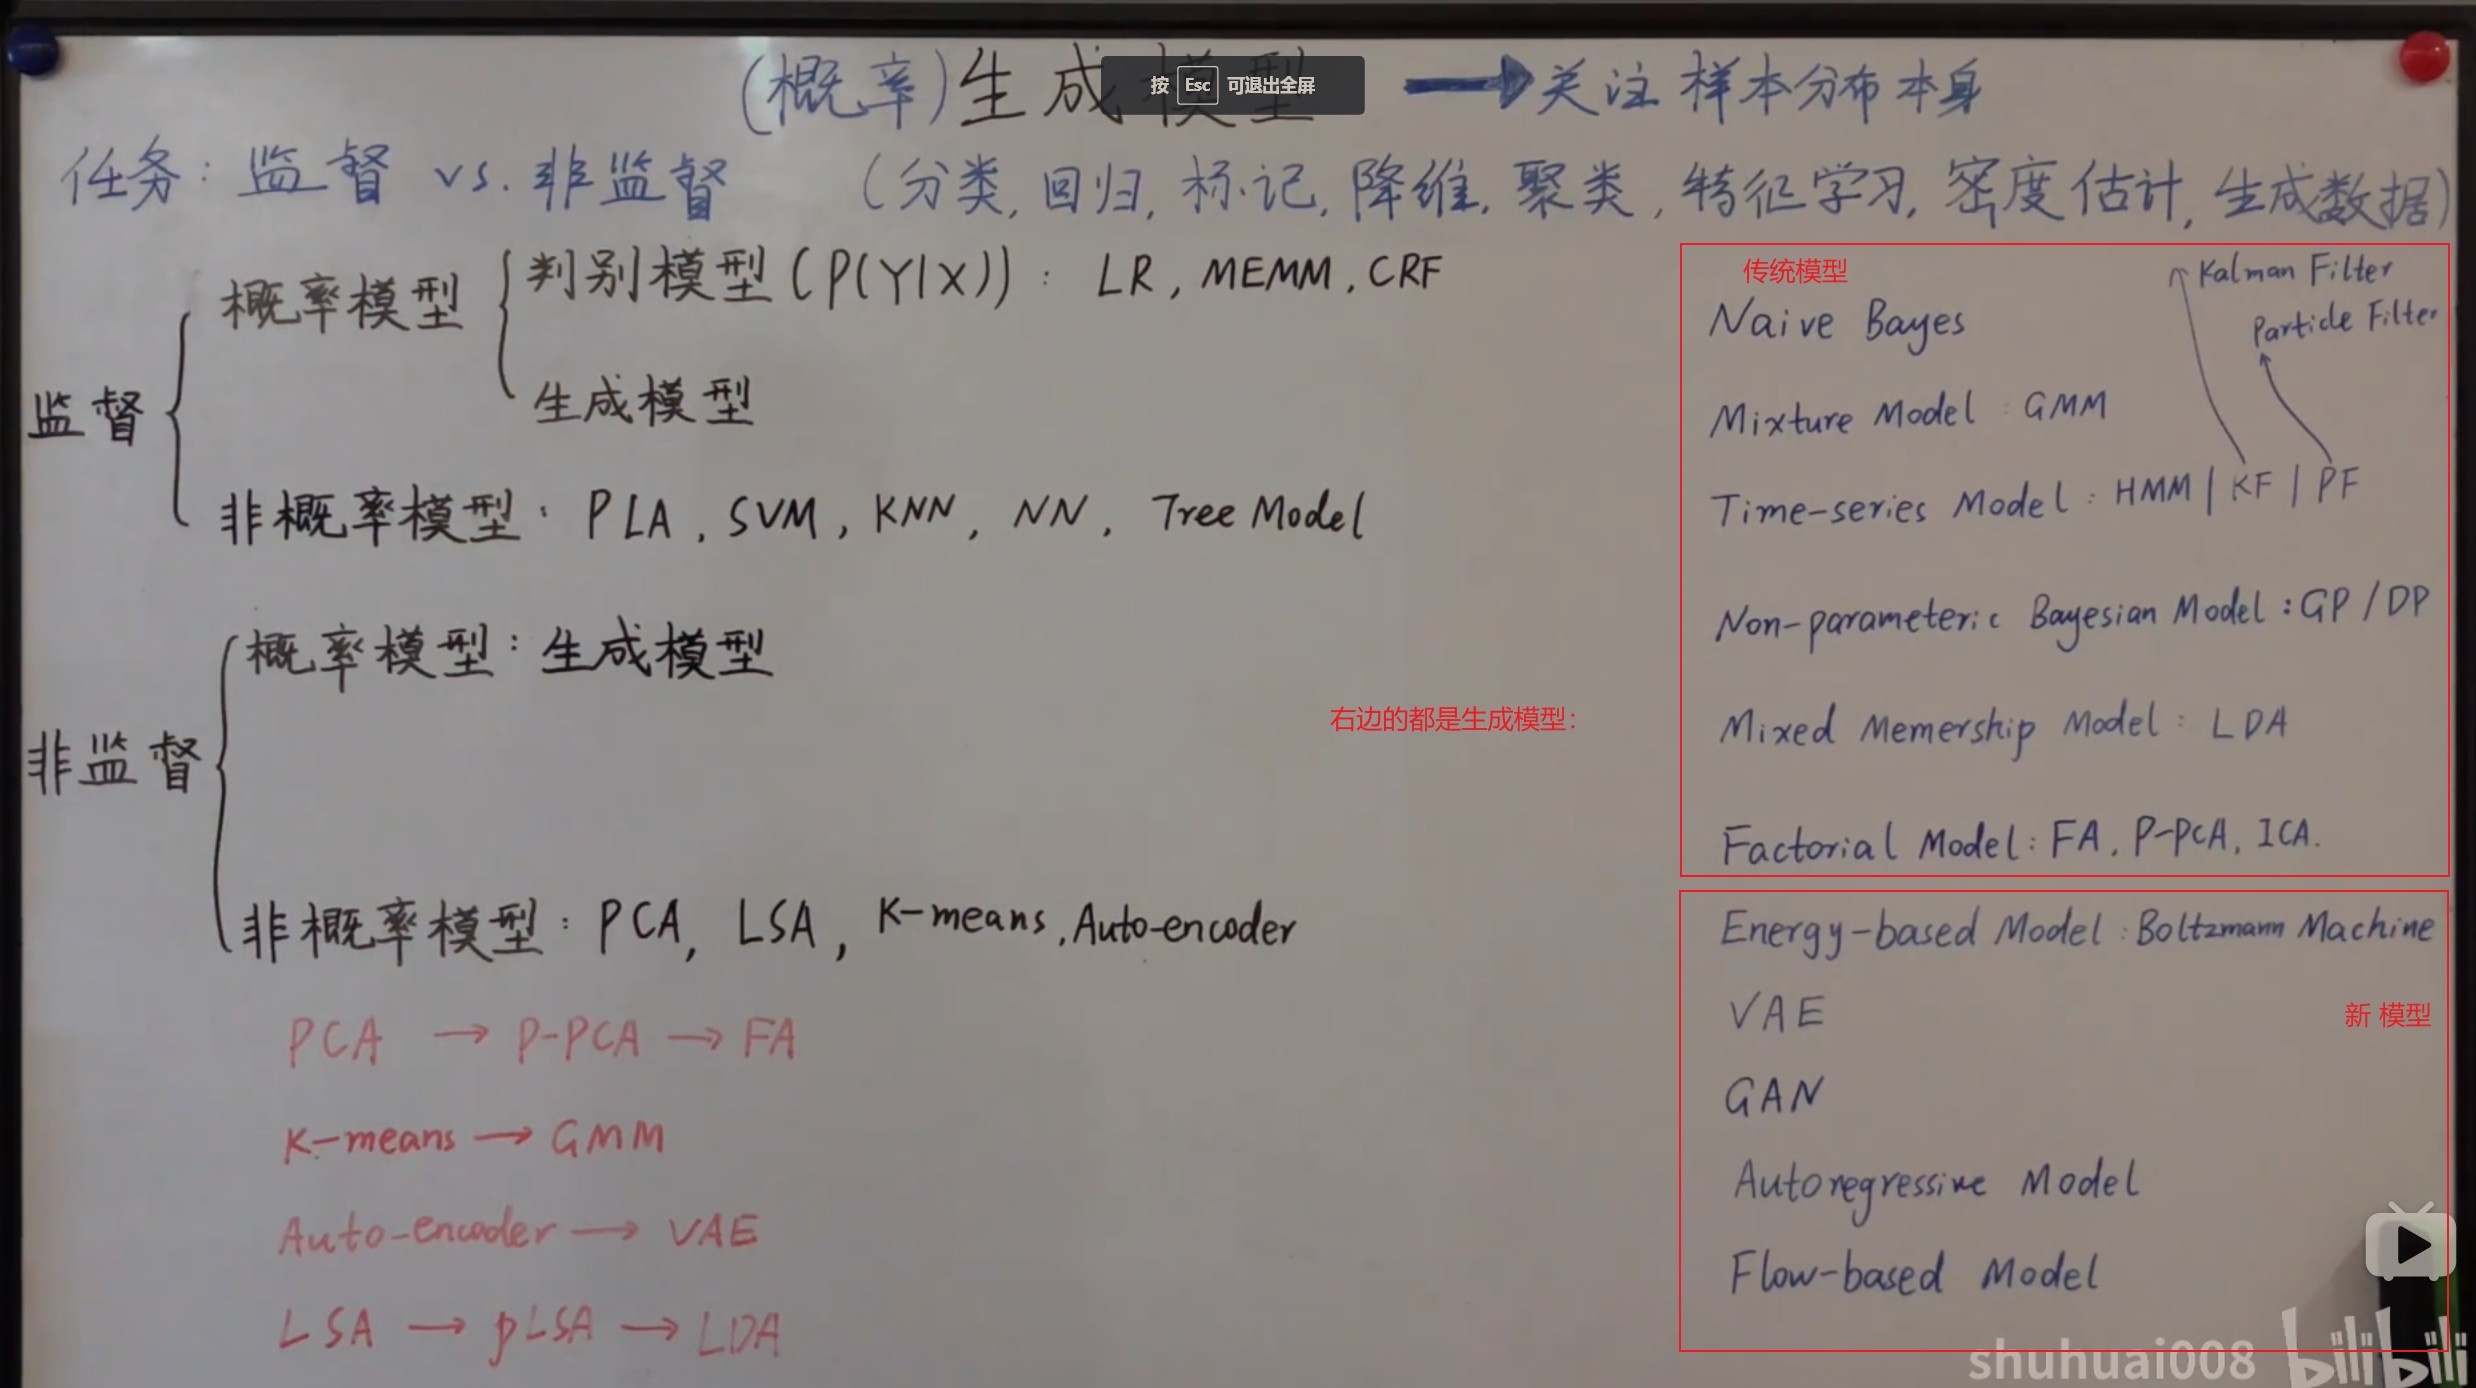 (概率)生成模型 → 关注样本分布本身
按 Esc 可退出全屏
任务: 监督 vs. 非监督 (分类, 回归, 标记, 降维, 聚类, 特征学习, 密度估计, 生成数据)
监督
概率模型
判别模型(P(Y|X)): LR, MEMM, CRF
生成模型
非概率模型: PLA, SVM, KNN, NN, Tree Model
非监督
概率模型: 生成模型
非概率模型: PCA, LSA, K-means, Auto-encoder
PCA → P-PCA → FA
K-means → GMM
Auto-encoder → VAE
LSA → pLSA → LDA
右边的都是生成模型:
传统模型
Kalman Filter
Particle Filter
Naive Bayes
Mixture Model: GMM
Time-series Model: HMM | KF | PF
Non-parameteric Bayesian Model: GP / DP
Mixed Memership Model: LDA
Factorial Model: FA, P-PCA, ICA.
Energy-based Model: Boltzmann Machine
VAE
新 模型
GAN
Autoregressive Model
Flow-based Model
shuhuai008 bilibili